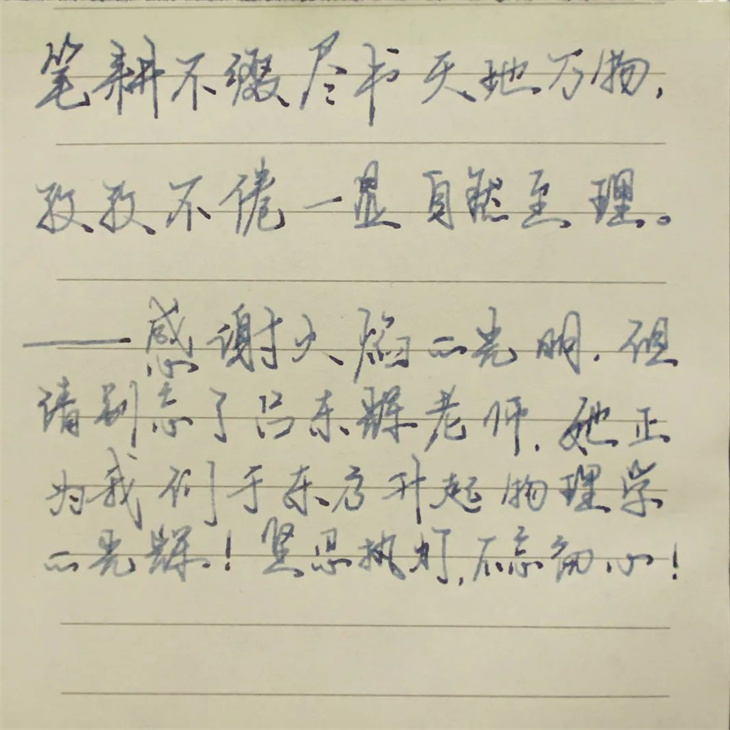 笔耕不缀尽书天地万物，
孜孜不倦一显自然至理。
——感谢火焰的光明，但
请别忘了吕东辉老师，她正
为我们于东方升起物理学
的光辉！坚忍执灯，不忘初心！